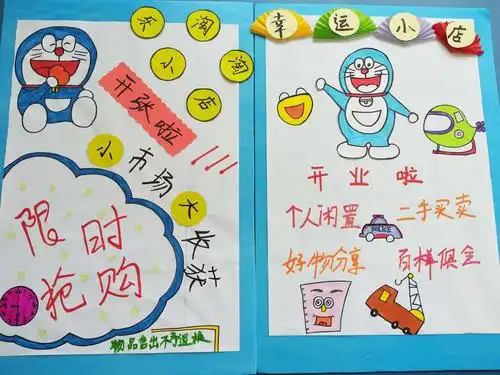 乐淘淘
小店
开张啦!!!
小市场大收获
限时
抢购
物品售出不予退换
幸运小店
开业啦
个人闲置 二手买卖
POLICE
好物分享 百样俱全